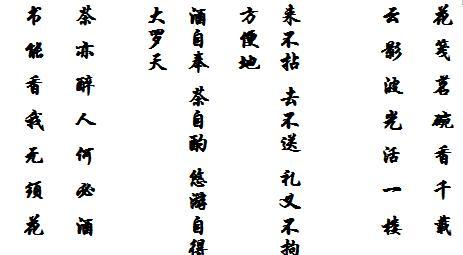 花笺茗碗香千载
云影波光活一楼
来不拈 去不送 礼义不拘
方便地
酒自奉 茶自酌 悠游自得
大罗天
茶亦醉人何必酒
书能香我无须花